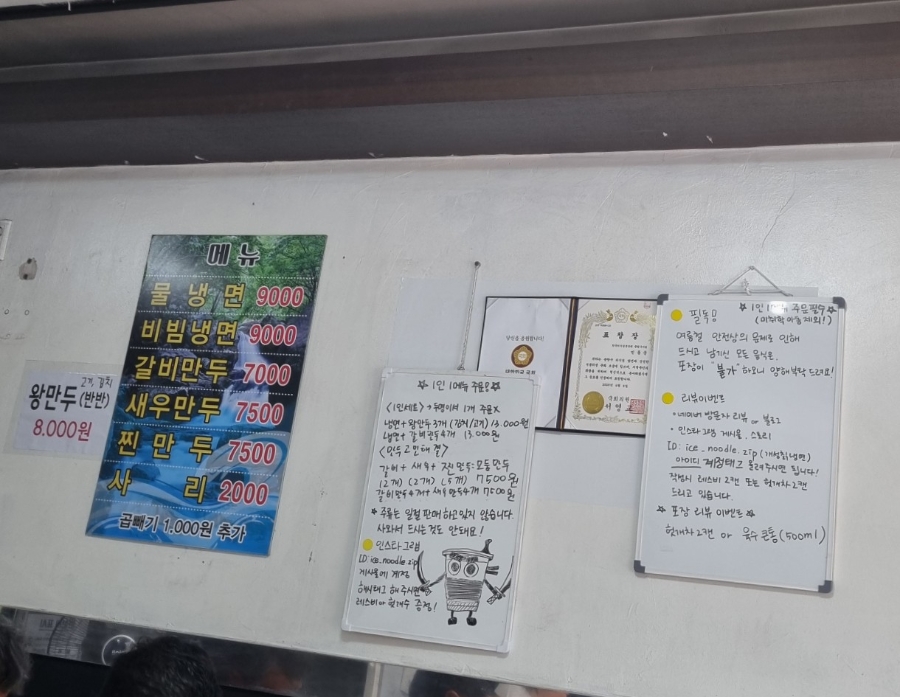 메뉴
물냉면 9000
비빔냉면 9000
갈비만두 7000
새우만두 7500
찐만두 7500
사리 2000
곱빼기 1,000원 추가
고기, 김치
왕만두 (반반)
8.000원
☆ 1인 1메뉴 주문요 ☆
<1인세트> → 두명이서 1개 주문X
냉면 + 왕만두 3개 (김치/고기) 13.000원
냉면 + 갈비만두 4개 13.000원
<만두 고민해결>
갈비 + 새우 + 찐만두: 모듬만두
(2개) (2개) (5개) 7500원
갈비만두 4개 + 새우만두 4개 7500원
* 주류는 일절 판매하고있지 않습니다.
사와서 드시는것도 안돼요!
인스타그램
ID: ice_noodle.zip
게시물에 계정
해시태그 해주시면
레스비 or 헛개수 증정!
표창장
국회의원
☆ 1인 1메뉴 주문필수 ☆
(미취학아동제외!)
필독!!
여름철 안전상의 문제로 인해
드시고 남기신 모든 음식은
포장이 "불가" 하오니 양해부탁드려요!
리뷰이벤트
• 네이버 방문자 리뷰 or 블로그
• 인스타그램 게시물, 스토리
ID: ice_noodle.zip (개성집냉면)
아이디 계정태그 올려주시면 됩니다!
작성시 레스비 2캔 또는 헛개차 2캔
드리고 있습니다.
☆ 포장 리뷰 이벤트 ☆
헛개차 2캔 or 육수 큰통 (500ml)